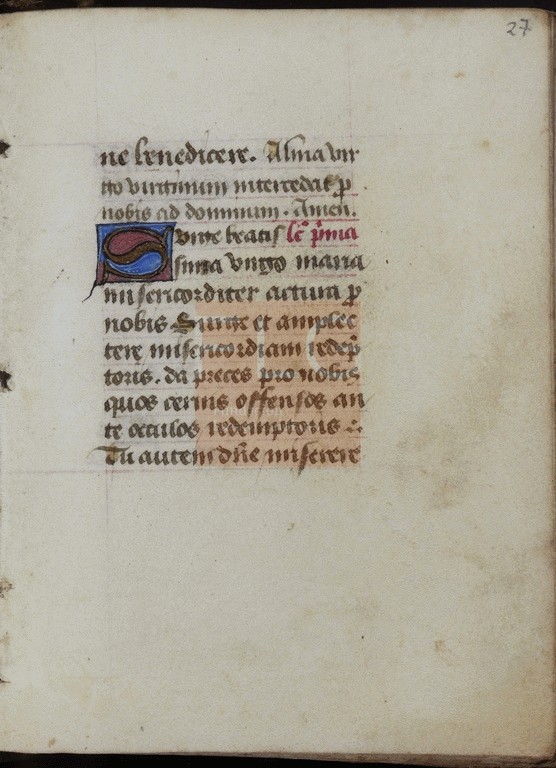 27
ne benedicere. Alma vir
go virginum intercedat p
nobis ad dominum. Amen.
Surge beatis lc̃ p̃ma
sima virgo maria
misericorditer actura p
nobis Surge et amplec
tere misericordiam redēp
toris. da preces pro nobis
quos cernis offensos an
te occulos redemptoris
Tu autem dñe miserere